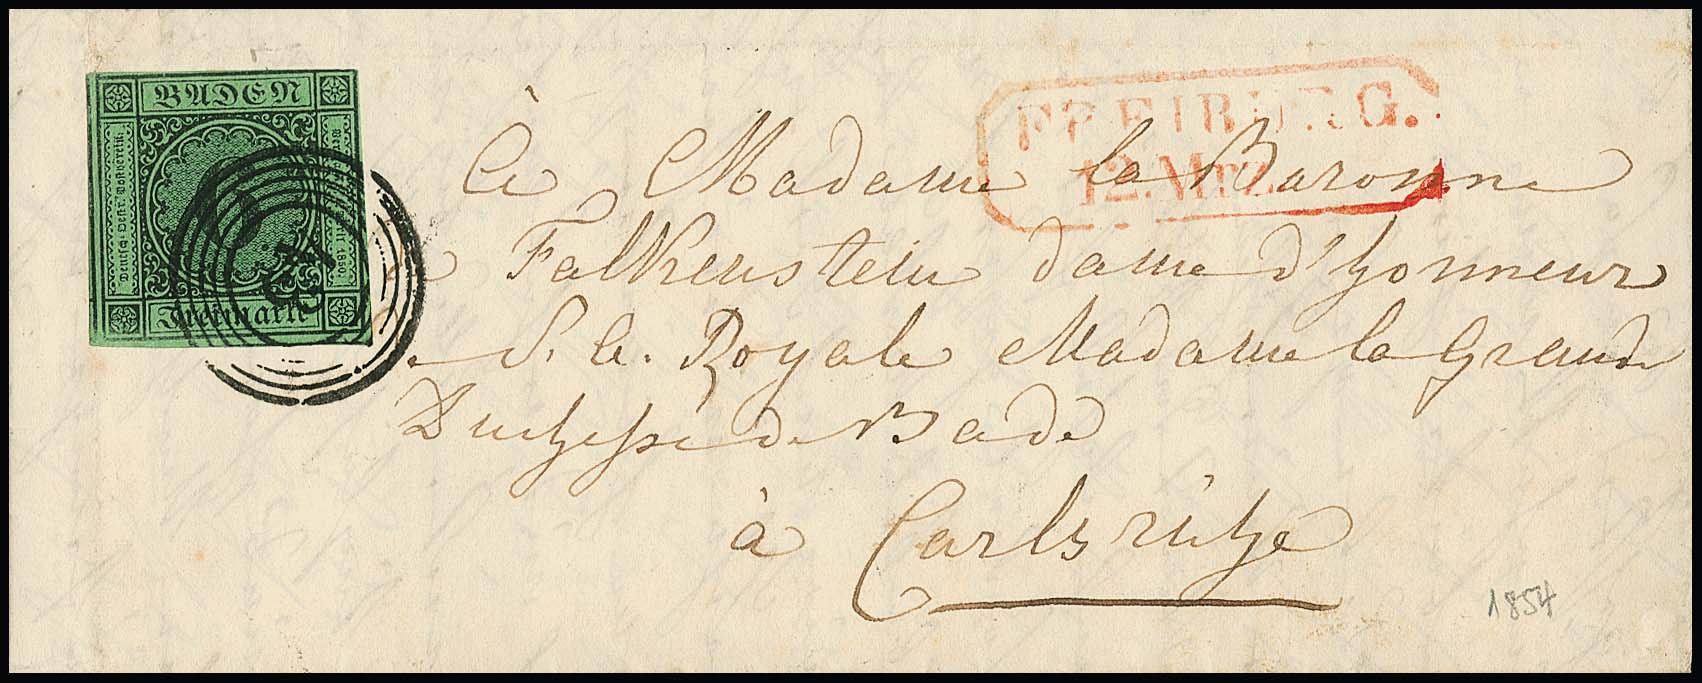 BADEN
Deutsch-Oestr. Postverein.
Freimarke
FREIBURG.
12. Mrz
à Madame la Baronne
Falkenstein dame d'honneur
S. A. Royale Madame la Grande
Duchesse de Bade
à Carlsruhe
1854